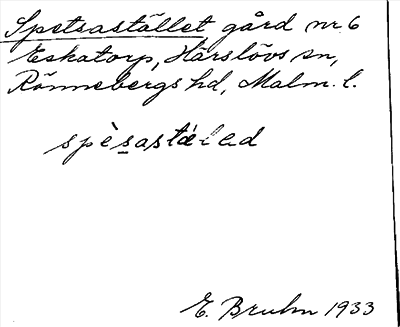 Spetsastället, gård nr 6
Eskatorp, Härslövs sn,
Rönnebergs hd, Malm. l.
spèsastá́lad
E. Bruhn 1933